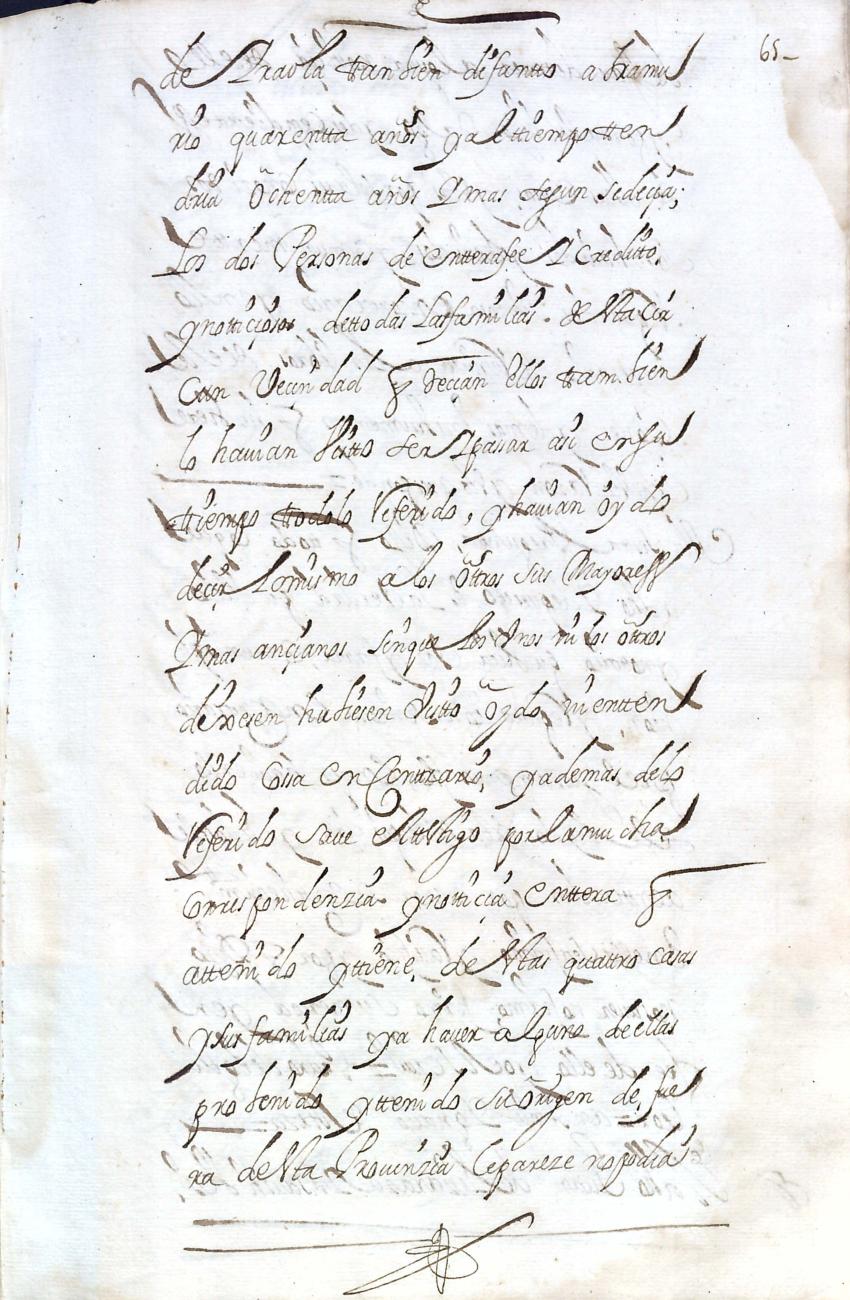 65
de Praola ttanbien difuntto abramu
rio quarentta años y al ttiempo tten
dria ochentta años y mas segun se decia;
los dos Personas de entterafee y creditto,
y notticiosos de ttodas las familias de esta cer
cana Vecindad q decian ellos ttambien
lo hauian visto ser y pasar asi en su
ttiempo ttodo lo Referido, y hauian oydo
decir lo mismo a los ottros sus Mayores
y mas ancianos sin que los Unos ni los ottros
deroesen hubiesen visto oydo, ni entten
dido cossa en Conttrario; y ademas de lo
Referido saue el ttesttigo por la mucha
Corrispondenzia y notticia enttera q
a ttenido y ttiene de esttas quattro casas
y sus familias y a hauer alguno de ellas
probenido y ttenido su origen de fue
ra de estta Prouinzia le pareze no podia